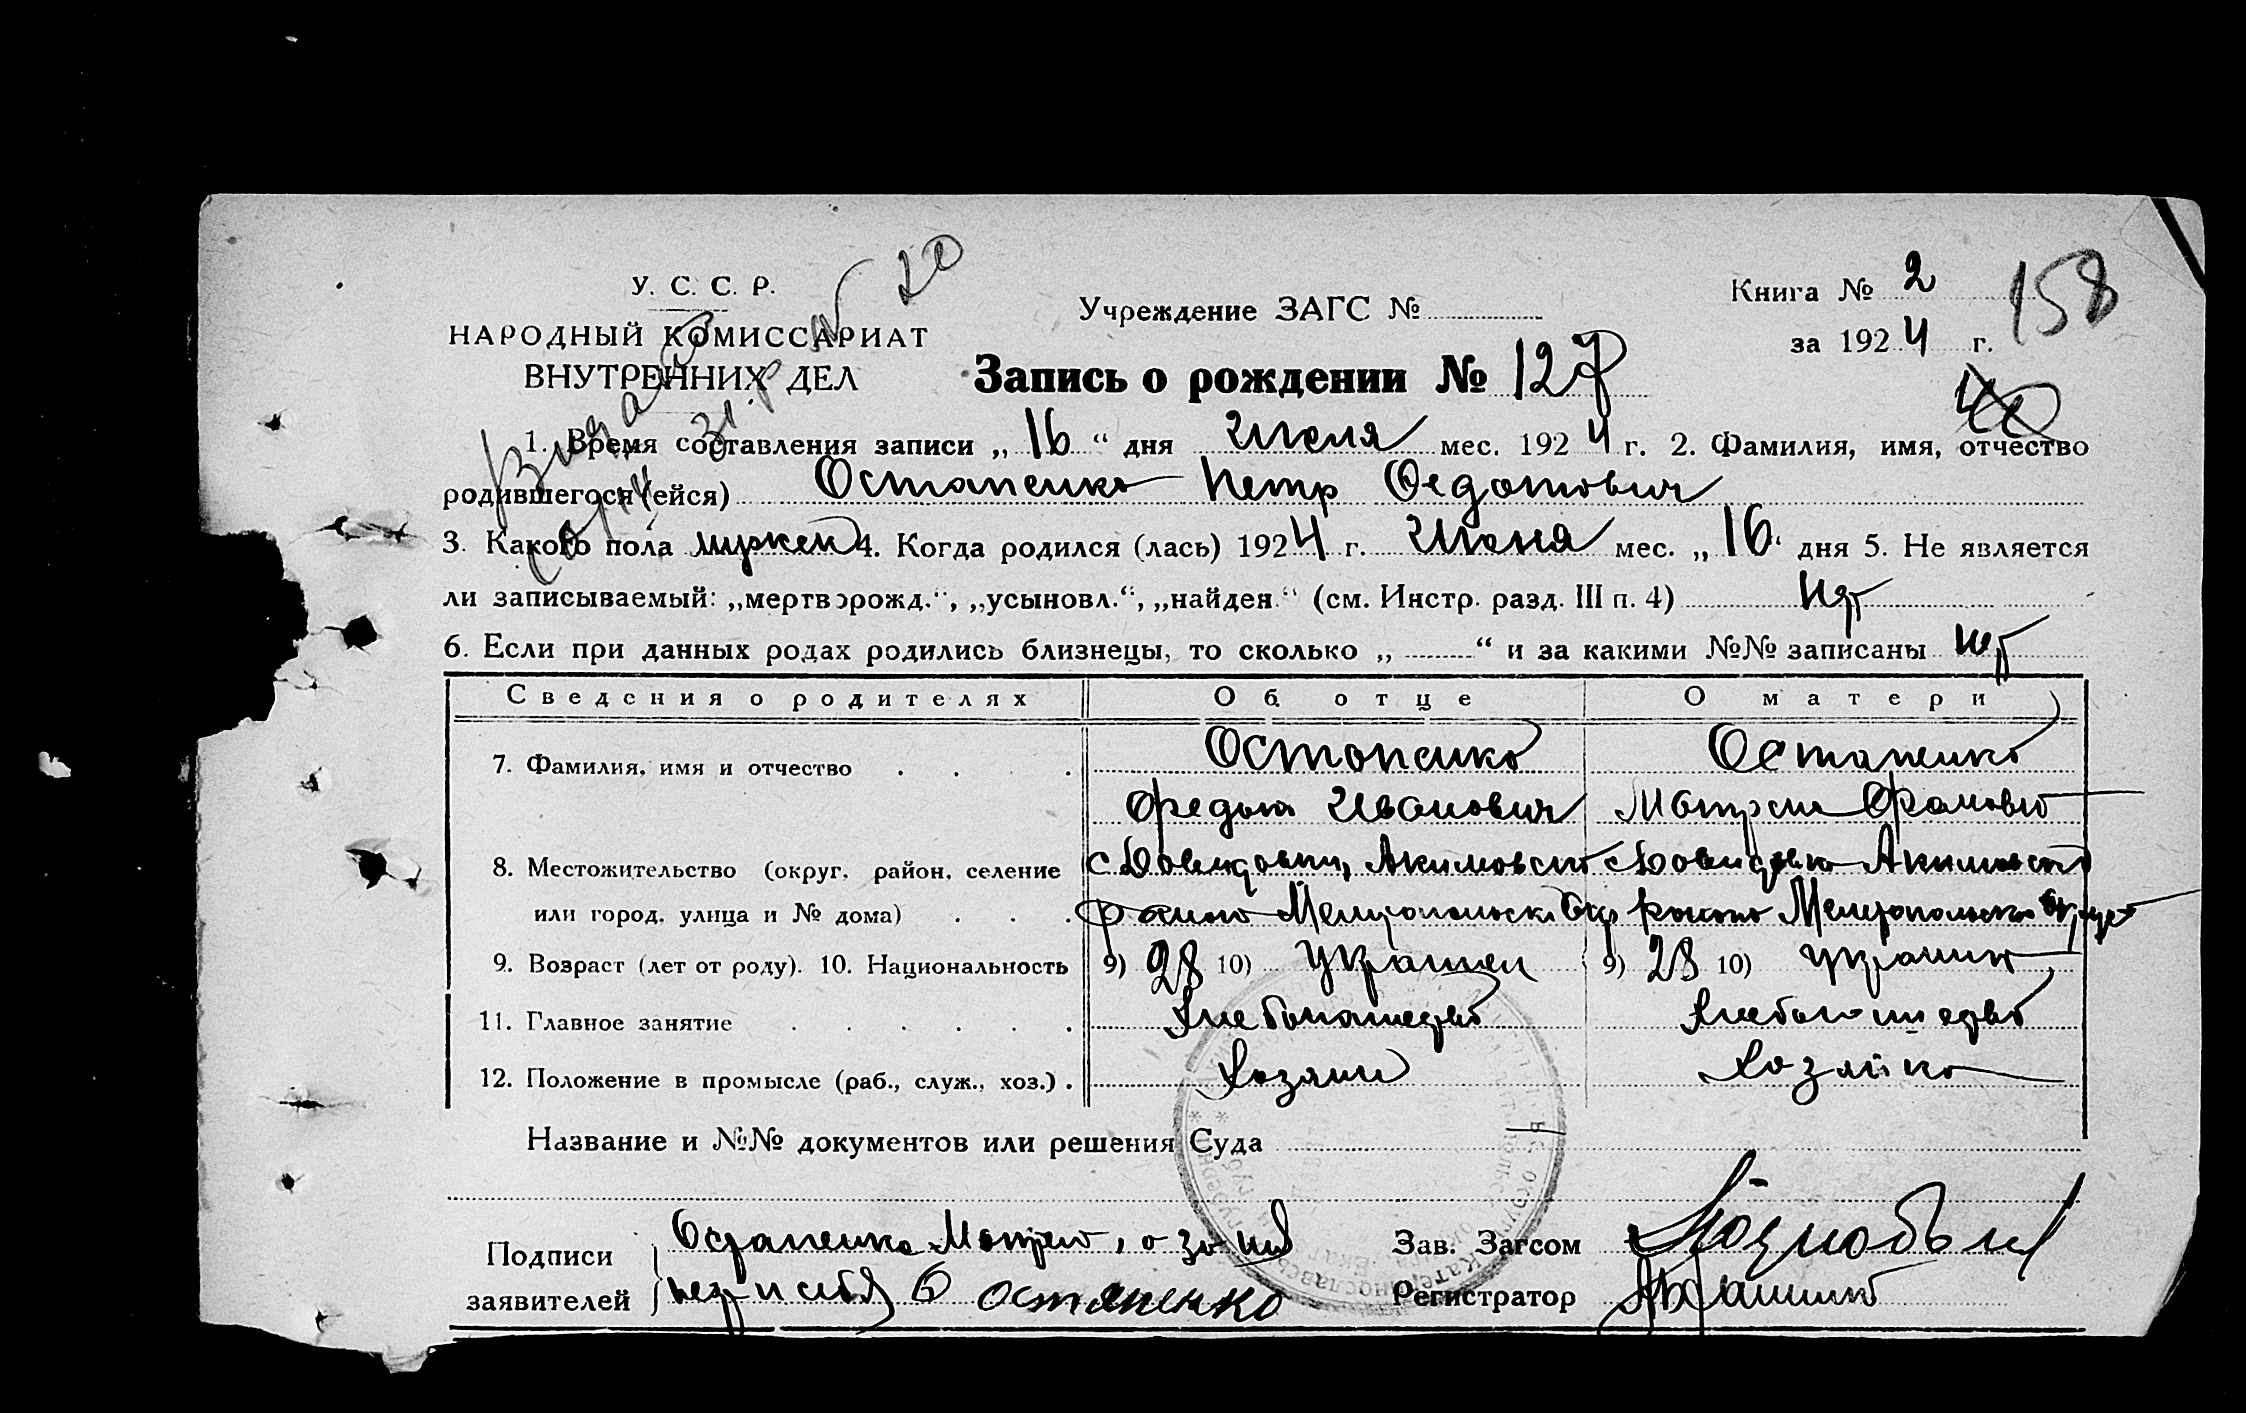 У. С. С. Р.
НАРОДНЫЙ КОМИССАРИАТ
ВНУТРЕННИХ ДЕЛ
Учреждение ЗАГС №
Книга № 2
158
за 1924 г.
Запись о рождении № 127
40
1. Время составления записи „16“ дня Июля мес. 1924 г. 2. Фамилия, имя, отчество
родившегося (ейся) Остапенко Петр Федотович
3. Какого пола мужск 4. Когда родился (лась) 1924 г. Июня мес. „16“ дня 5. Не является
ли записываемый: „мертворожд.“, „усыновл.“, „найден.“ (см. Инстр. разд. III п. 4) Нет
6. Если при данных родах родились близнецы, то сколько „ “ и за какими №№ записаны нет
Сведения о родителях Об отце О матери
7. Фамилия, имя и отчество Остапенко Остапенко
Федот Иванович
8. Местожительство (округ, район, селение с Давидовки, Акимовско с Давидовка Акимовско
или город, улица и № дома) района Мелитопольск Окр района Мелитопольско Округ
9. Возраст (лет от роду). 10. Национальность 9) 28 10) Украинец 9) 28 10) украинк
11. Главное занятие Хлебопашество Хлебопашество
12. Положение в промысле (раб., служ., хоз.) Хозяин Хозяйка
Название и №№ документов или решения Суда
Подписи Остапенко Мотрею, а за ние Зав. Загсом
заявителей Остапенко Регистратор